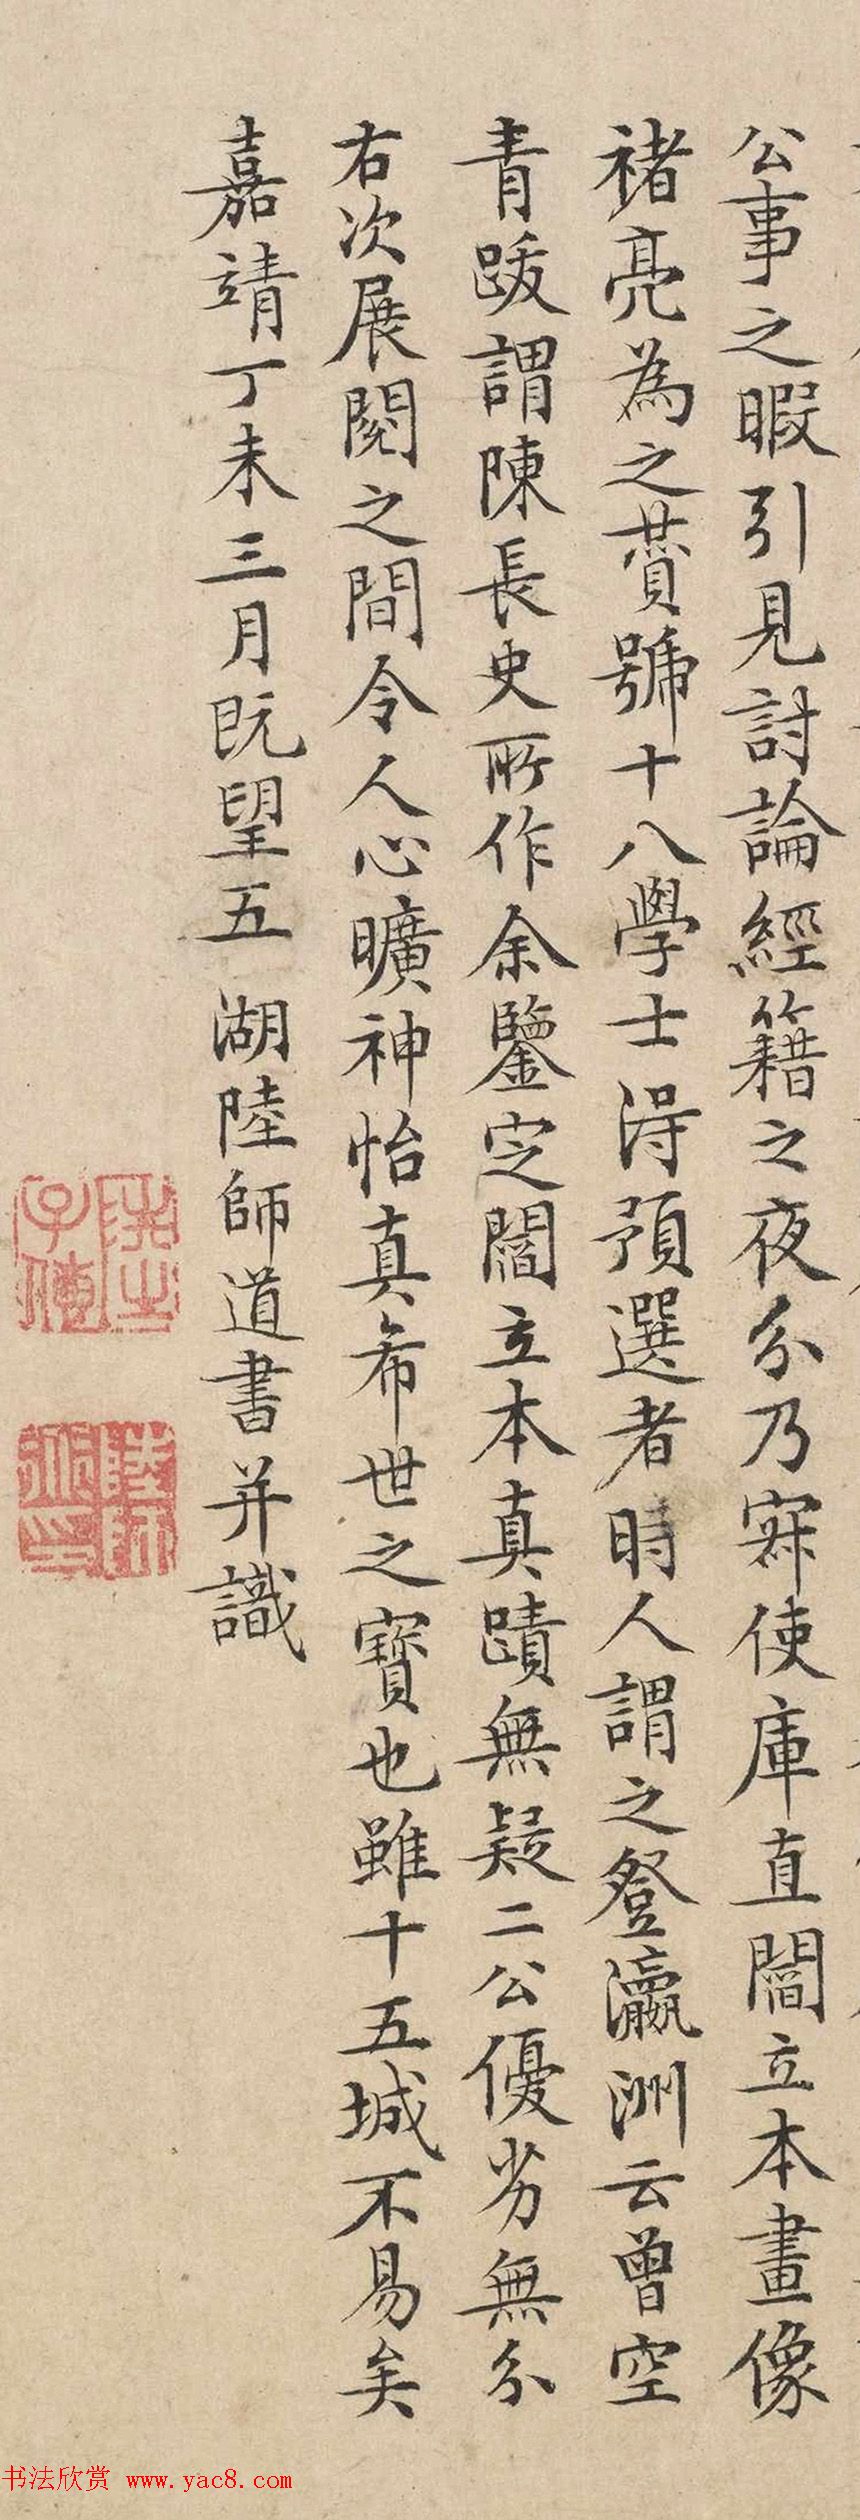 公事之暇引見討論經籍之夜分乃寐使庫直閻立本畫像
褚亮為之贊號十八學士得預選者時人謂之登瀛洲云曾空
青跋謂陳長史所作余鑒定閻立本真蹟無疑二公優劣無分
右次展閱之間令人心曠神怡真希世之寶也雖十五城不易矣
嘉靖丁未三月既望五湖陸師道書并識
陸師道印
书法欣赏 www.yac8.com